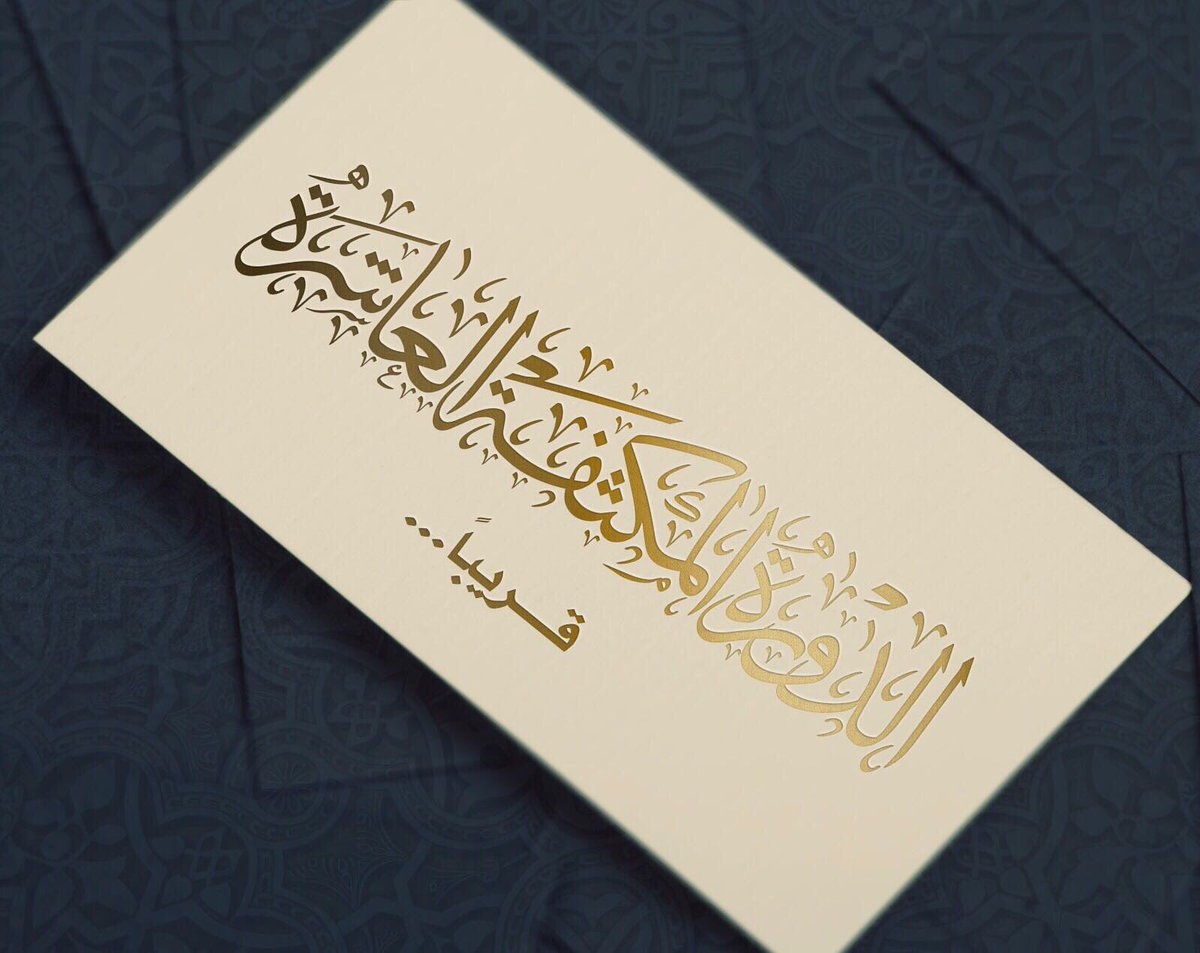 الدورة المكثفة العاشرة
قريباً...